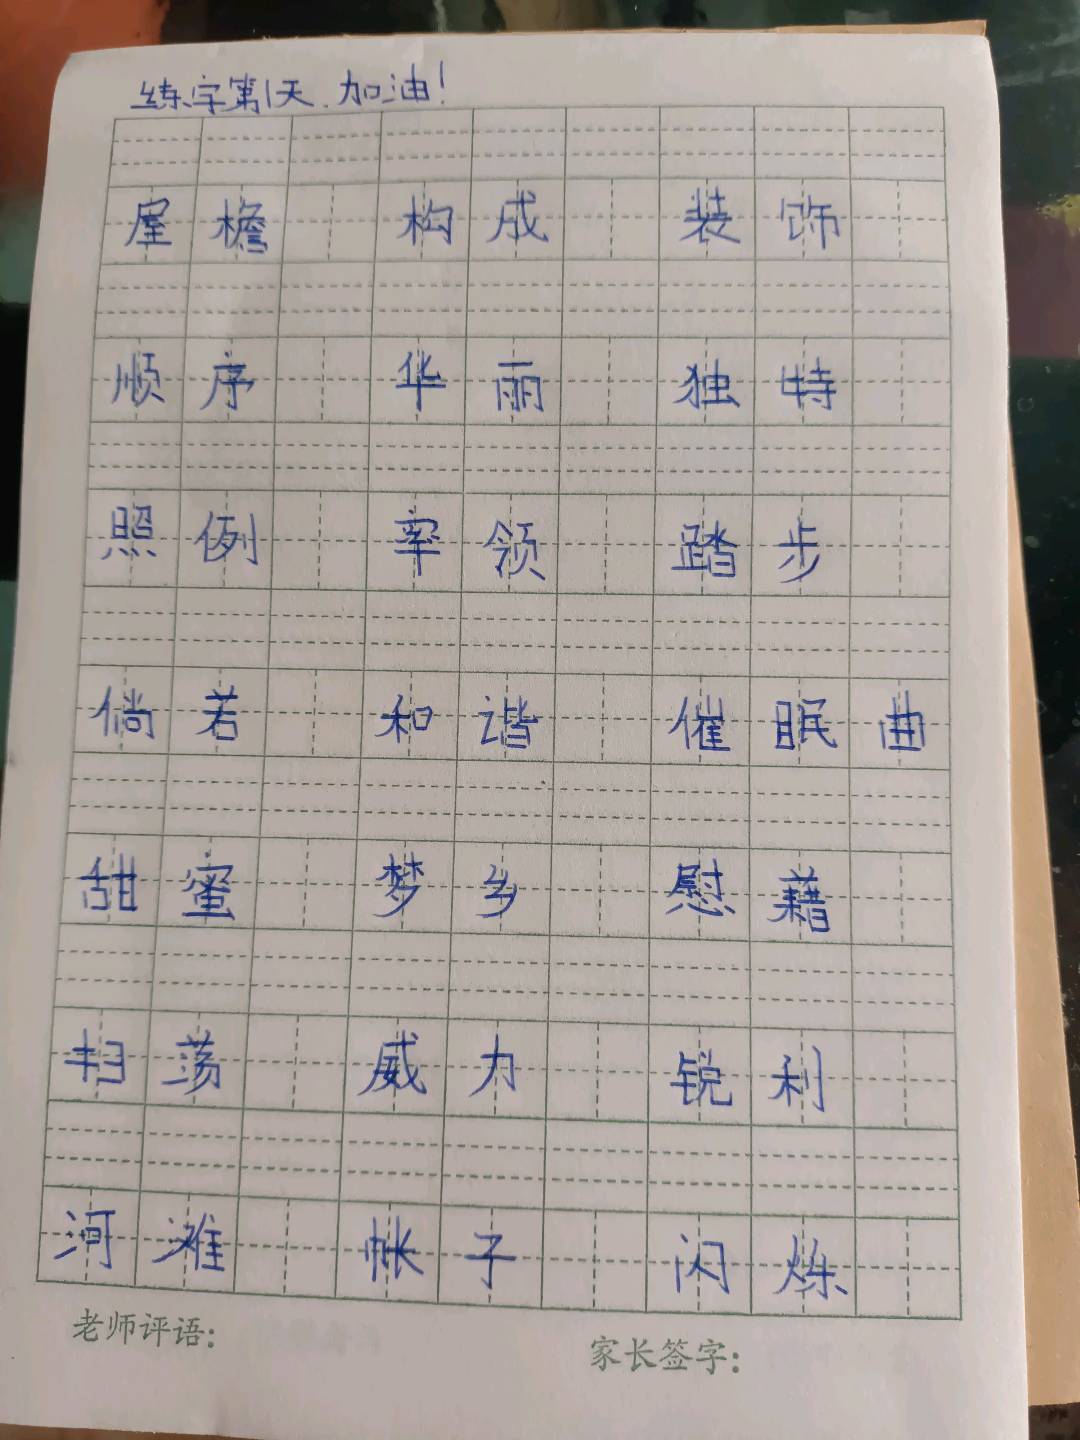 练字第1天.加油!
屋檐 构成 装饰
顺序 华丽 独特
照例 率领 踏步
倘若 和谐 催眠曲
甜蜜 梦乡 慰藉
扫荡 威力 锐利
河滩 帐子 闪烁
老师评语: 家长签字: